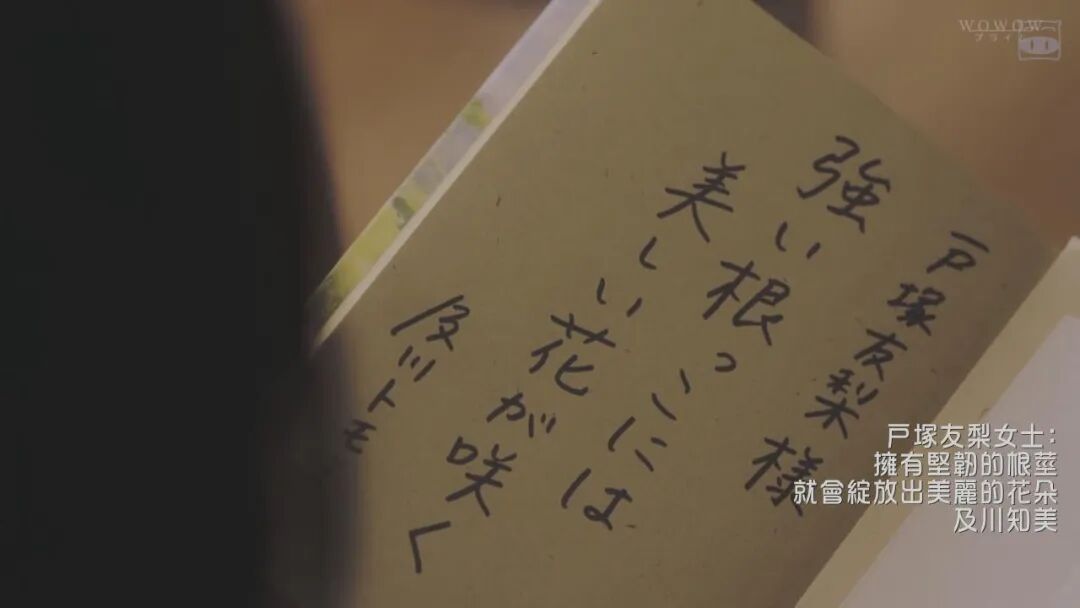 WOWOW
プライム
戸塚友梨様
強い根っこには
美しい花が咲く
及川トモ
戸塚友梨女士:
擁有堅韌的根莖
就會綻放出美麗的花朵
及川知美